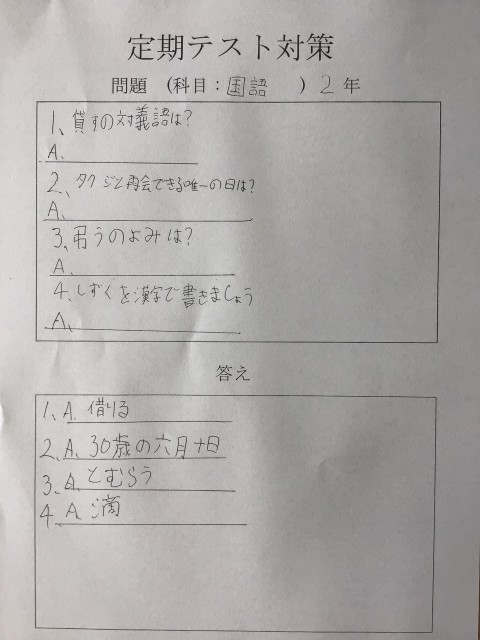 定期テスト対策
問題 (科目:国語 ) 2年
1、貸すの対義語は?
A.
2、タクジと再会できる唯一の日は?
A、
3、弔うのよみは?
A.
4、しずくを漢字で書きましょう
A、
答え
1、A. 借りる
2、A、30歳の六月十日
3、A、とむらう
4、A、滴